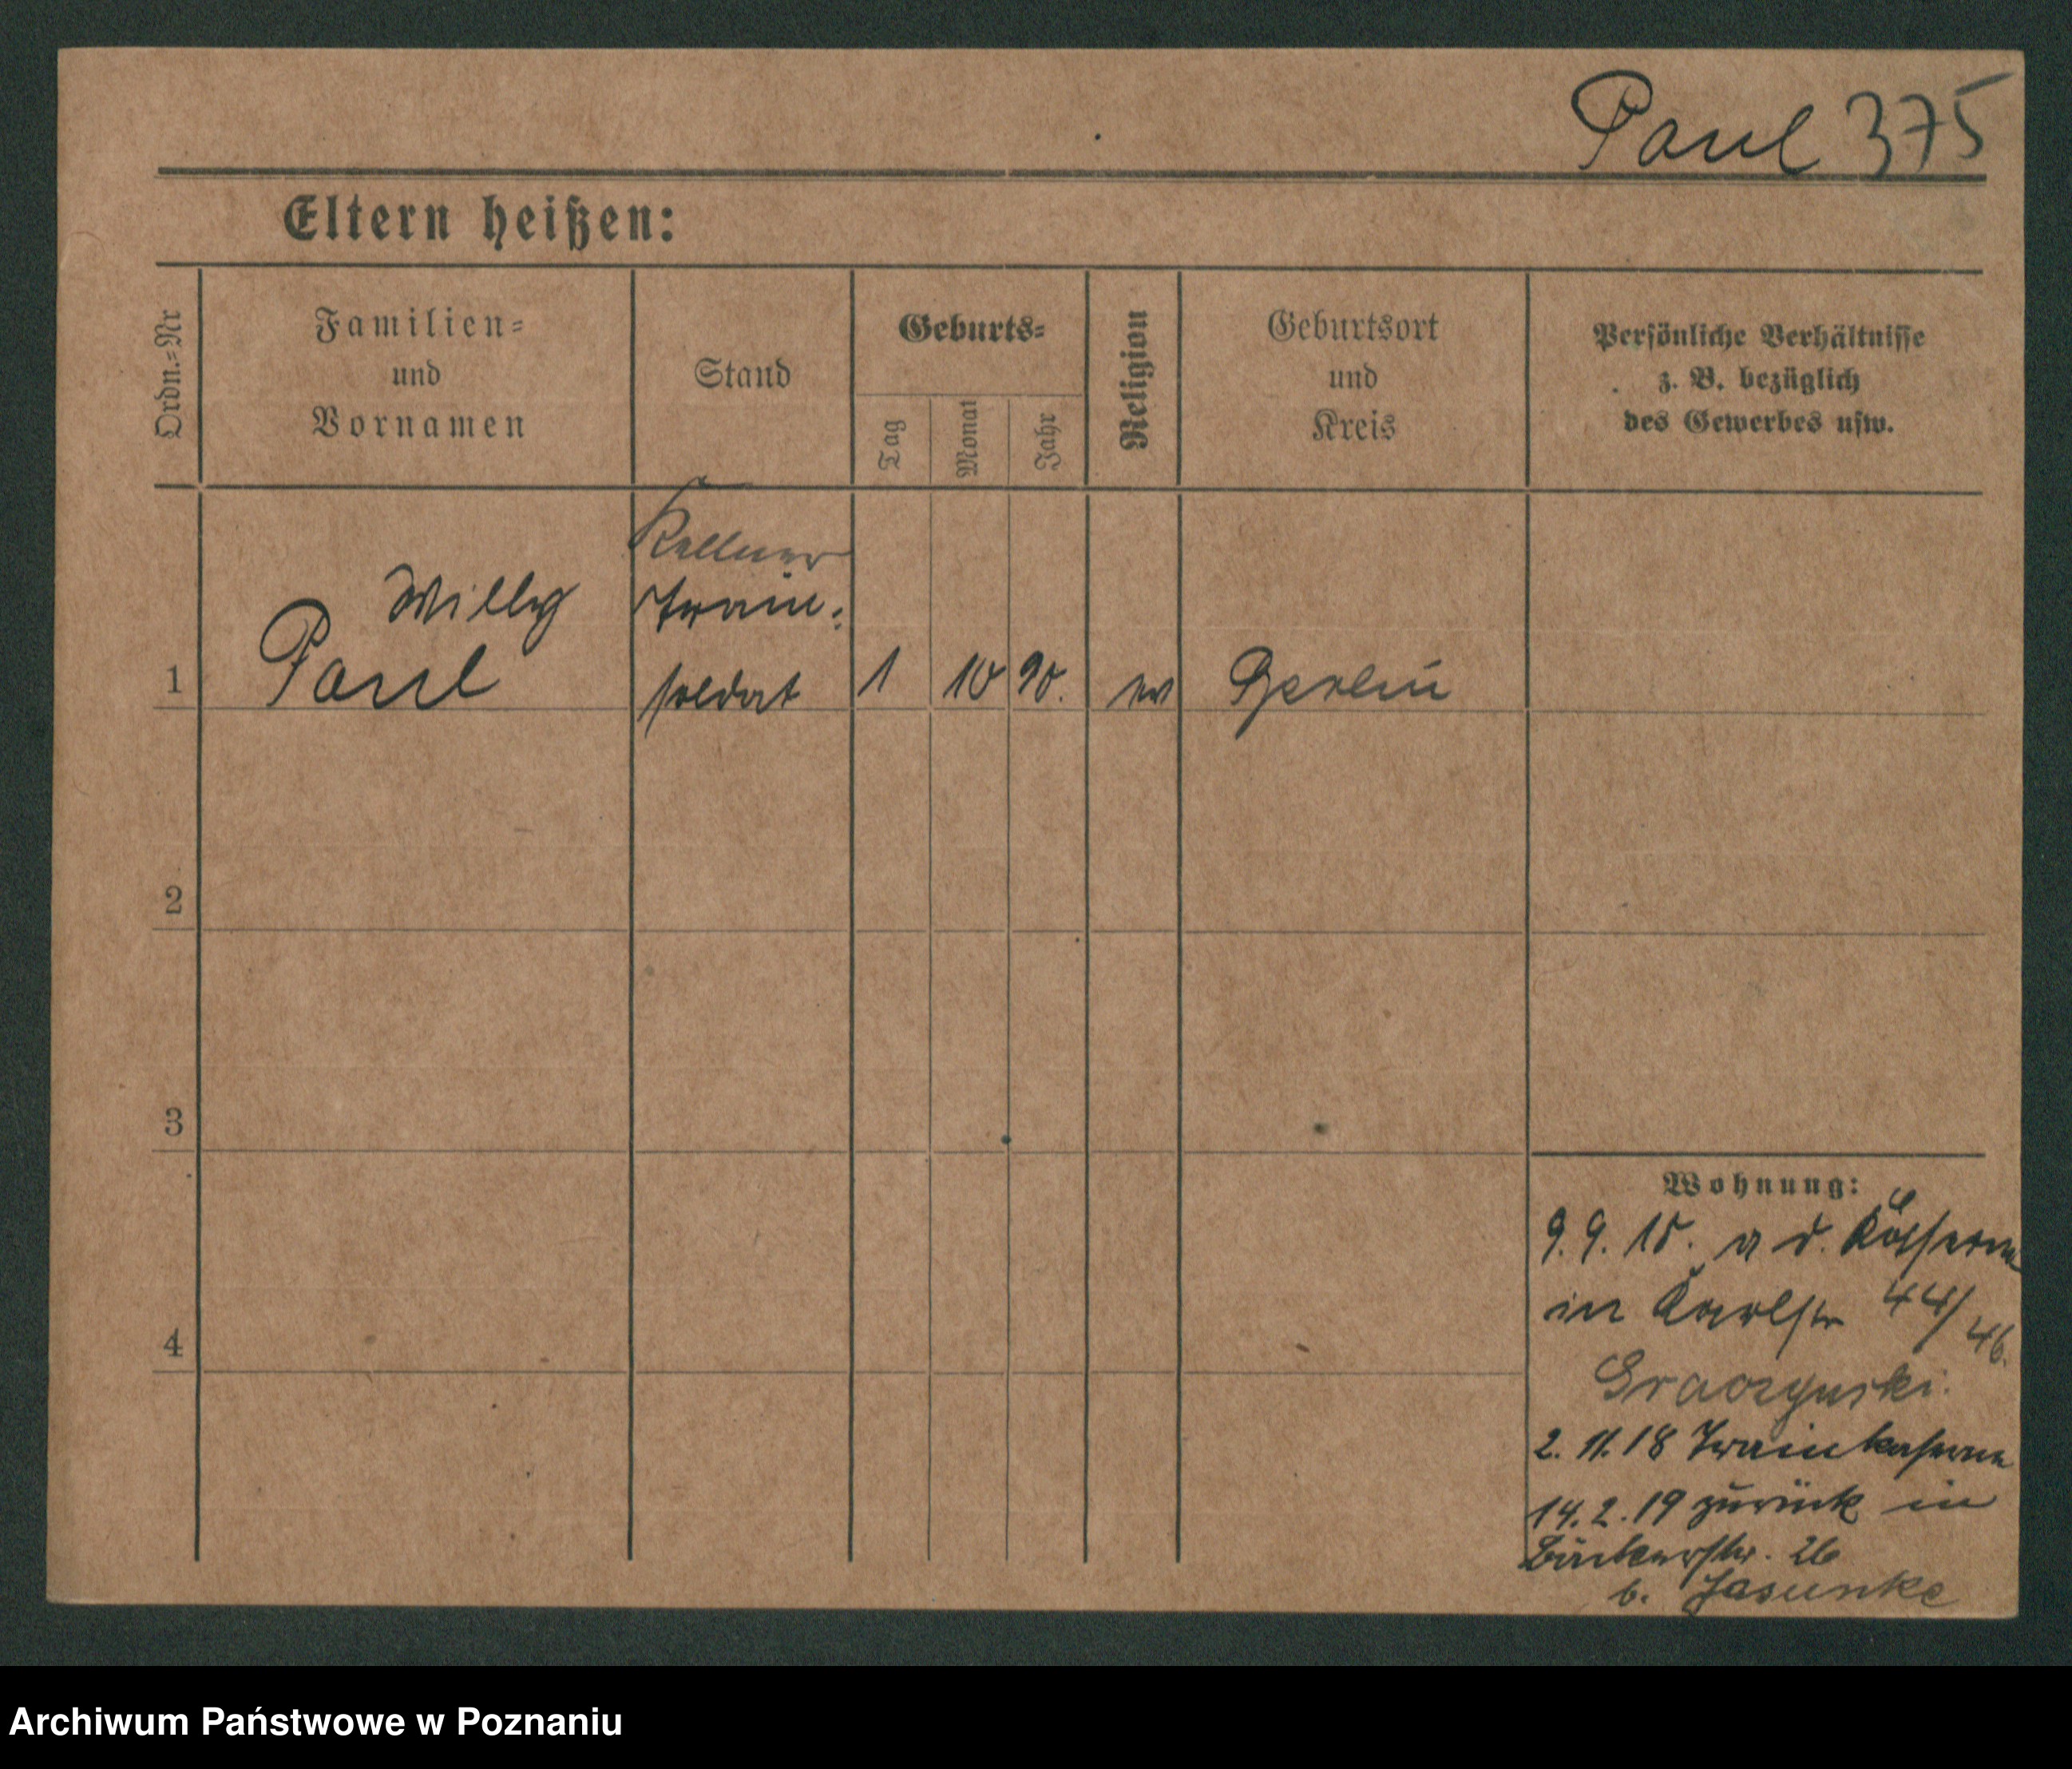 Paul 375
Eltern heißen:
Ordn.=Nr
Familien=
und
Vornamen
Stand
Geburts=
Tag
Monat
Jahr
Religion
Geburtsort
und
Kreis
Persönliche Verhältnisse
z. B. bezüglich
des Gewerbes usw.
Kellner
Willy Train=
1 Paul soldat 1 10 90. ev Berlin
2
3
4
Wohnung:
9. 9. 18. a d.
in Karlstr 44/46.
2. 11. 18 Trainkaserne
14. 2. 19 zurück in
Bäckerstr. 26
b. Jasunke
Archiwum Państwowe w Poznaniu